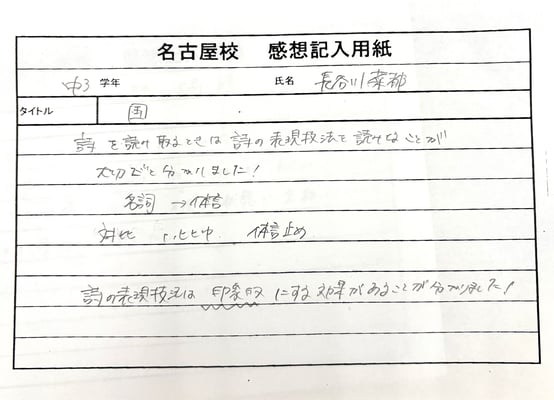 名古屋校 感想記入用紙
中3 学年 氏名 長谷川
タイトル 国
詩を読み取るときは詩の表現技法を読むことが
大切だと分かりました!
名詞→体言
対比 体言止め
詩の表現技法は印象的にする効果があることが分かりました!